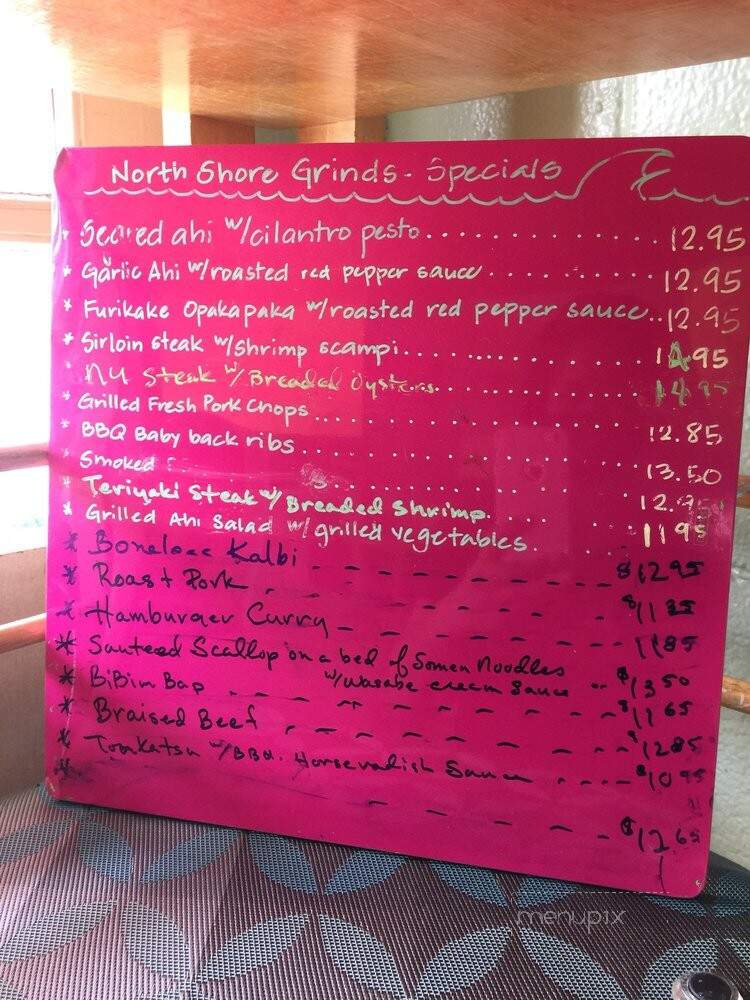 North Shore Grinds - Specials
* Seared ahi w/cilantro pesto.......... 12.95
* Garlic Ahi w/roasted red pepper sauce......... 12.95
* Furikake Opakapaka w/roasted red pepper sauce.. 12.95
* Sirloin steak w/shrimp scampi........... 14.95
* NY Steak w/ Breaded Oysters........... 14.95
* Grilled Fresh Pork Chops........... 12.85
* BBQ Baby back ribs........... 13.50
* Smoked ........... 12.95
* Teriyaki Steak w/ Breaded shrimp..... 11 95
* Grilled Ahi Salad w/ grilled vegetables.
* Boneless Kalbi - - - - - - $12 95
* Roast Pork - - - - - - $11 85
* Hamburger Curry - - - - - 11 85
* Sauteed Scallop on a bed of Somen Noodles
w/wasabe cream sauce -- $13 50
* BiBim Bap - - - - - - $11 65
* Braised Beef - - - - - - $12 85
* Tonkatsu w/BBQ. Horseradish Sauce ---- $10 95
* - - - - - $12 65
menupix